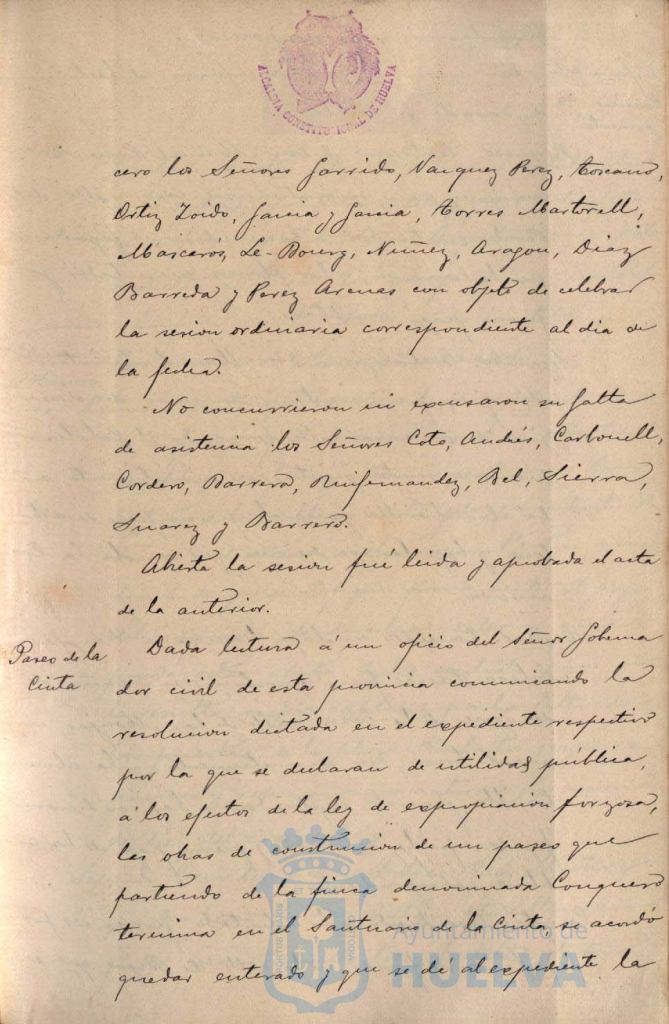 ALCALDIA CONSTITUCIONAL DE HUELVA
cero los Señores Garrido, Vazquez Perez, Toscano,
Ortiz Zoido, Garcia y Garcia, Torres Martorell,
Mascarós, Le-Bourg, Nuñez, Aragon, Diaz
Barreda y Perez Arenas con objeto de celebrar
la sesion ordinaria correspondiente al dia de
la fecha.
No concurrieron ni excusaron su falta
de asistencia los Señores Coto, Andrés, Carbonell,
Cordero, Barrera, Ruifernandez, Bel, Sierra,
Suarez y Barrero.
Abierta la sesion fué leida y aprobada el acta
de la anterior.
Paseo de la
Cinta
Dada lectura á un oficio del Señor Goberna
dor civil de esta provincia comunicando la
resolucion dictada en el expediente respectivo
por la que se declaran de utilidad pública,
á los efectos de la ley de expropiacion forzosa,
las obras de construccion de un paseo que
partiendo de la finca denominada Conquero
termina en el Santuario de la Cinta se acordó
quedar enterado y que se dé al expediente la
Ayuntamiento de
HUELVA